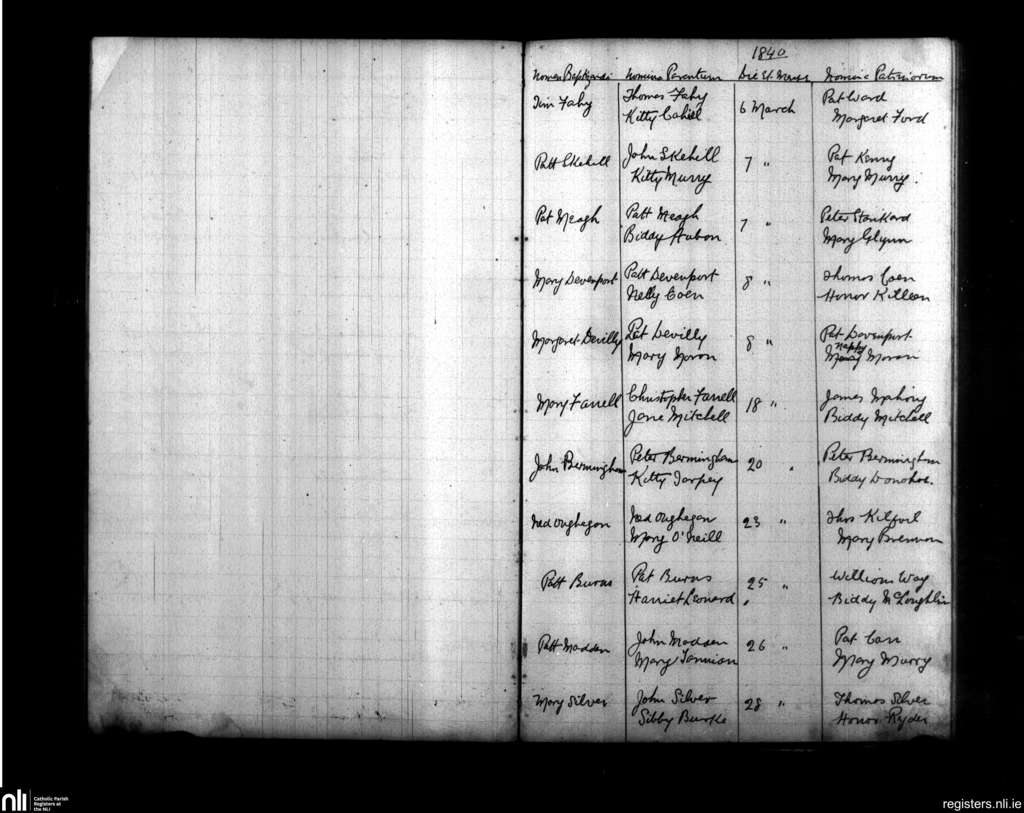 1840
Nomen Baptizandi Nomina Parentum Die et Mense Nomina Patrinorum
Tim Fahy Thomas Fahy 6 March Pat Ward
Kitty Cahill Margaret Ford
Patt Skehill John Skehill 7 " Pat Kenny
Kitty Murry Mary Murry.
Pat Meagh Patt Meagh 7 " Peter Stankard
Biddy Mary Glynn
Mary Devenport Patt Devenport 8 " Thomas Coen
Nelly Coen Honor Killeen
Margaret Devilly Pat Devilly 8 " Pat Davenport
Nappy
Mary Moron Mary Moron
Mary Farrell Christopher Farrell 18 " James Mahony
Jane Mitchell Biddy Mitchell
John Bermingham Peter Bermingham 20 " Peter Bermingham
Kitty Tarpey Biddy Donohoe.
Ned Oughegan Ned Oughegan 23 " Thos
Mary O'Neill Mary Brennan
Patt Burns Pat Burns 25 " William Way
Harriet Leonard Biddy McLoughlin
Patt Madden John Madden 26 " Pat Carr
Mary Tannian Mary Murry
Mary Silver John Silver 28 " Thomas Silver
Sibby Burke Honor Ryder
nli Catholic Parish
Registers at
the NLI
registers.nli.ie